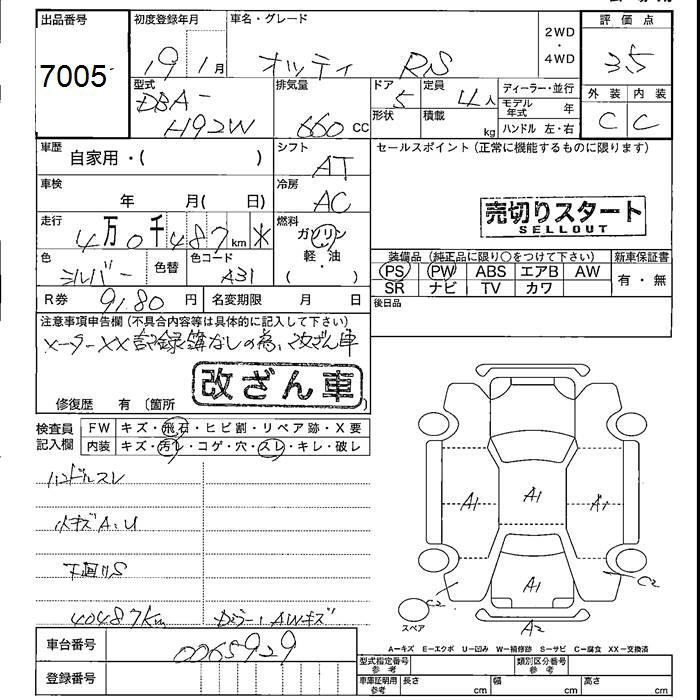 出品番号
7005
初度登録年月
19 1月
車名・グレード
オッティ RS
2WD
・
4WD
評価点
3.5
型式
DBA-
H92W
排気量
660 cc
ドア
5
形状
定員
4人
積載
kg
ディーラー・並行
モデル年式 年
ハンドル 左・右
外装 内装
C C
車歴
自家用・( )
シフト
AT
セールスポイント(正常に機能するものに限ります)
車検
年 月( 日)
冷房
AC
売切りスタート
SELLOUT
走行
4万0千487km ※
燃料
ガソリン
・
軽・油
・
( )
色
シルバー
色替
色コード
A31
装備品(純正品に限り○をつけて下さい)
PS PW ABS エアB AW
SR ナビ TV カワ
新車保証書
有・無
R券
9180円
名変期限 月 日
後日品
注意事項申告欄(不具合内容等は具体的に記入して下さい)
メーターXX 記録簿なしの為、改ざん車
改ざん車
修復歴 有〔箇所 〕
検査員記入欄
FW キズ・飛石・ヒビ割・リペア跡・X要
内装 キズ・汚レ・コゲ・穴・スレ・キレ・破レ
ハンドルスレ
小キズA.U
下廻りS
40487km
AWキズ
A1 A1 A1
A1
C2 C2
A2
スペア
車台番号
0065929
登録番号
A-キズ E-エクボ U-凹み W-補修跡 S-サビ C-腐食 XX-交換済
型式指定番号 参考
類別区分番号 参考
車庫証明用 参考
長さ cm 幅 cm 高さ cm